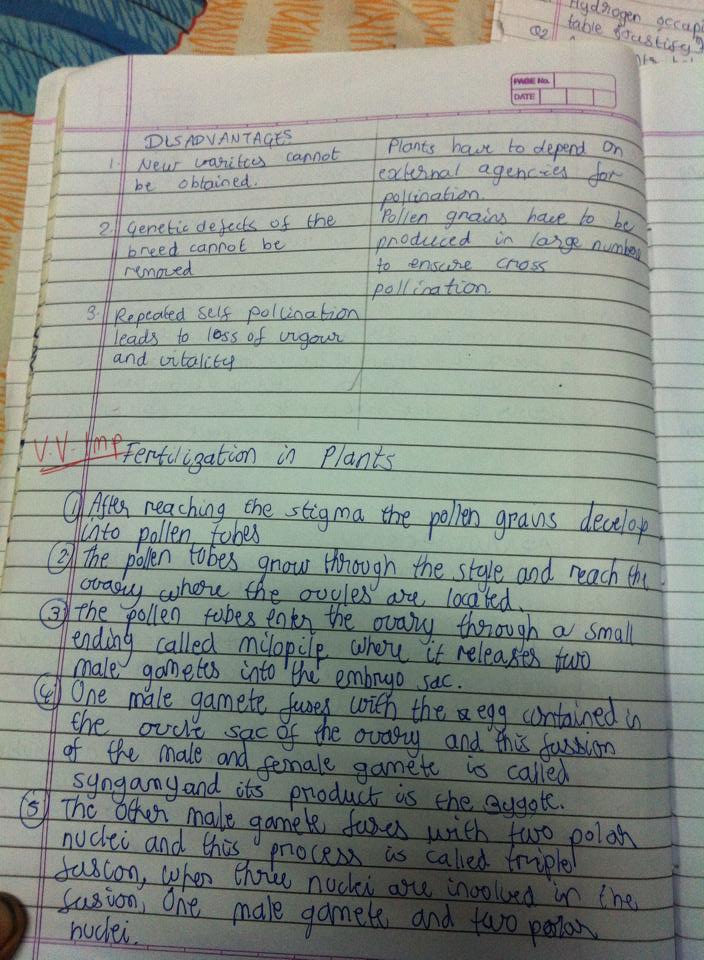 Hydrogen occup
Q2 table Justify?
PAGE No.
DATE
DISADVANTAGES
1. New varities cannot
be obtained.
2. Genetic defects of the
breed cannot be
removed
3. Repeated self pollination
leads to loss of vigour
and vitality
Plants have to depend on
external agencies for
pollination.
Pollen grains have to be
produced in large number
to ensure cross
pollination.
V.V. Imp Fertilization in Plants
1 After reaching the stigma the pollen grains develop
into pollen tubes
2 The pollen tubes grow through the style and reach the
ovary where the ovules are located.
3 The pollen tubes enter the ovary through a small
ending called milopile where it releases two
male gametes into the embryo sac.
4 One male gamete fuses with the egg contained in
the ovule sac of the ovary and this fussion
of the male and female gamete is called
syngamy and its product is the zygote.
5 The other male gamete fuses with two polar
nuclei and this process is called triplet
fusion, when three nuclei are involved in the
fusion, One male gamete and two polar
nuclei.